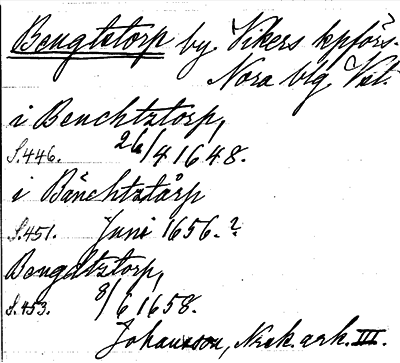 Bengtstorp by. Vikers kpförs.
Nora blg Vst.
i Benchtztorp,
S.446. 26/4 1648.
i Bänchtztårp
S.451. Juni 1656.?
Bengdtztorp,
S.453. 8/6 1658.
Johansson, Nrak. ark. III.